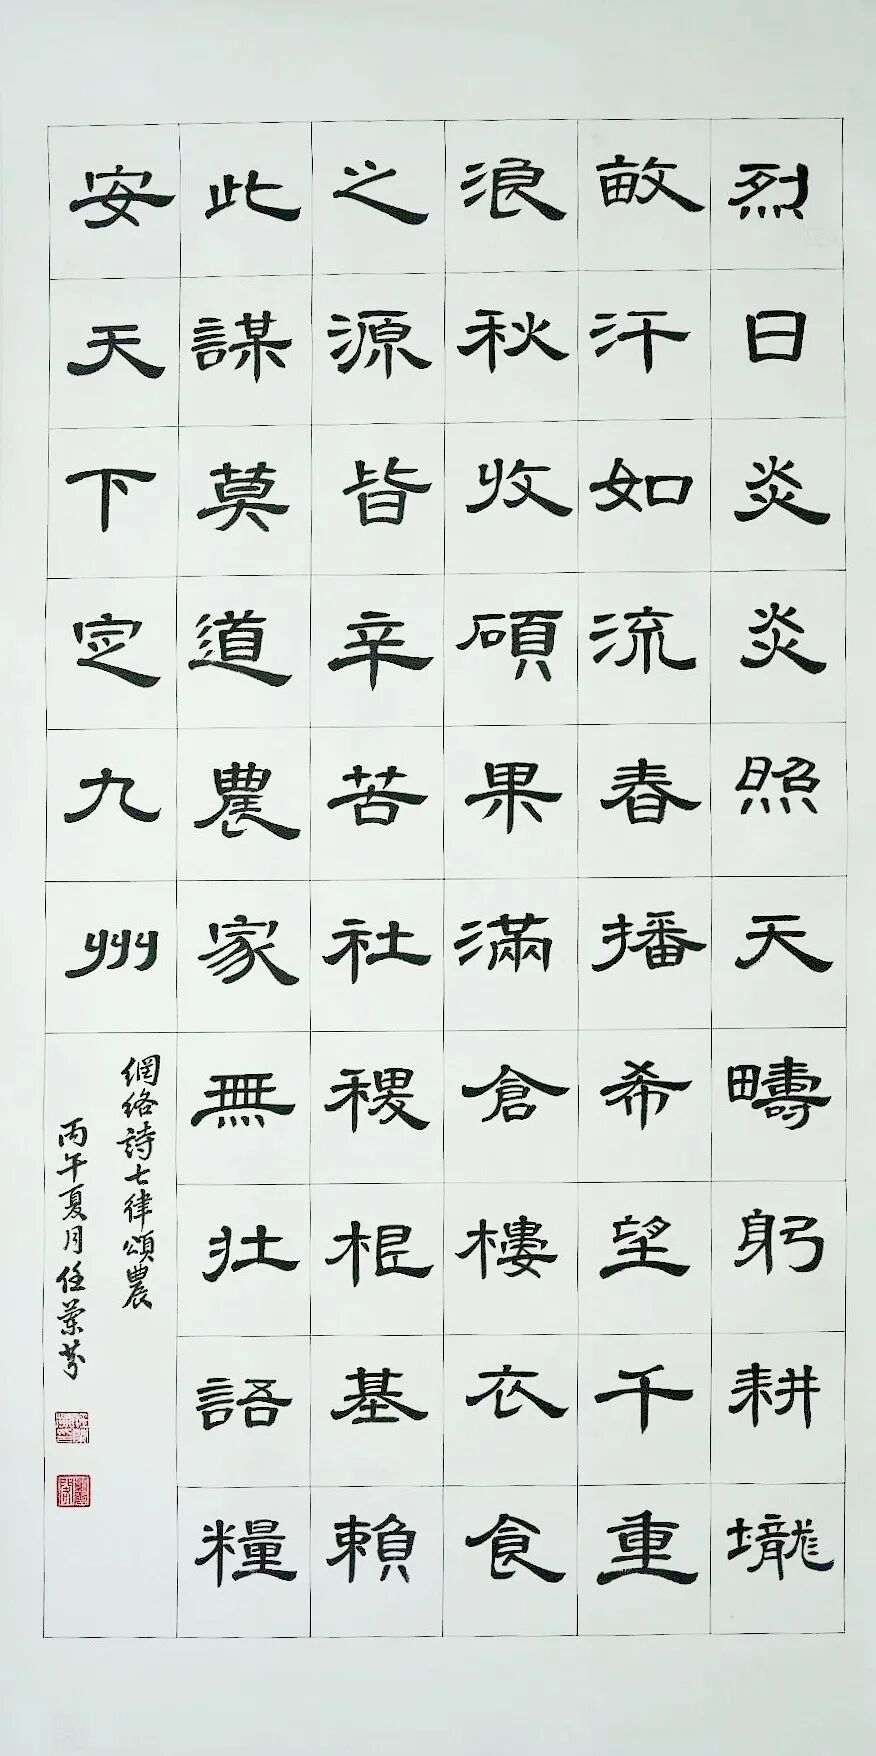 烈日炎炎照天疇躬耕壠
畝汗如流春播希望千重
浪秋收碩果滿倉樓衣食
之源皆辛苦社稷根基賴
此謀莫道農家無壯語糧
安天下定九州
網絡詩七律頌農
丙午夏月任蘭芬